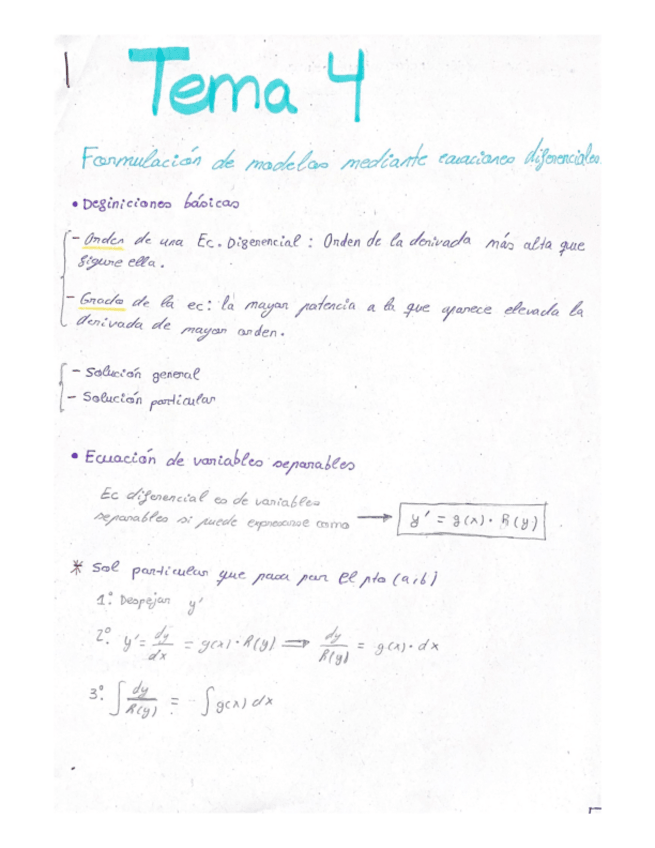 1
Tema 4
Formulación de modelos mediante ecuaciones diferenciales.
• Definiciones básicas
- Orden de una Ec. Diferencial : Orden de la derivada más alta que
figure ella.
- Grado de la ec: la mayor potencia a la que aparece elevada la
derivada de mayor orden.
- Solución general
- Solución particular
• Ecuación de variables separables
Ec diferencial es de variables
separables si puede expresarse como → y' = g(x) · h(y)
* Sol particular que pasa por el pto (a,b)
1º. Despejar y'
2º. y' = dy/dx = g(x) · h(y) ⟹ dy/h(y) = g(x) · dx
3º. ∫ dy/h(y) = - ∫ g(x) dx